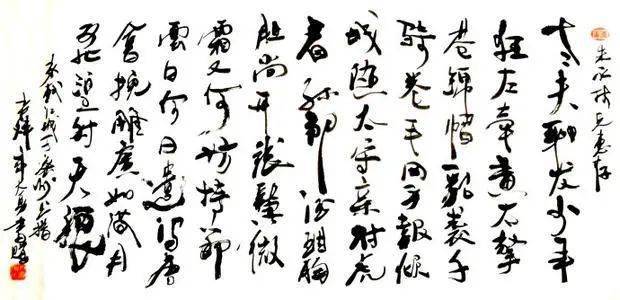 兄惠存
老夫聊发少年
狂左牵黄右擎
苍锦帽貂裘千
骑卷平冈为報倾
城随太守亲射虎
看孙郎酒酣胸
胆尚开张鬓微
霜又何妨持节
雲中何日遣冯唐
会挽雕弓如满月
西北望射天狼
东坡江城子密州出猎